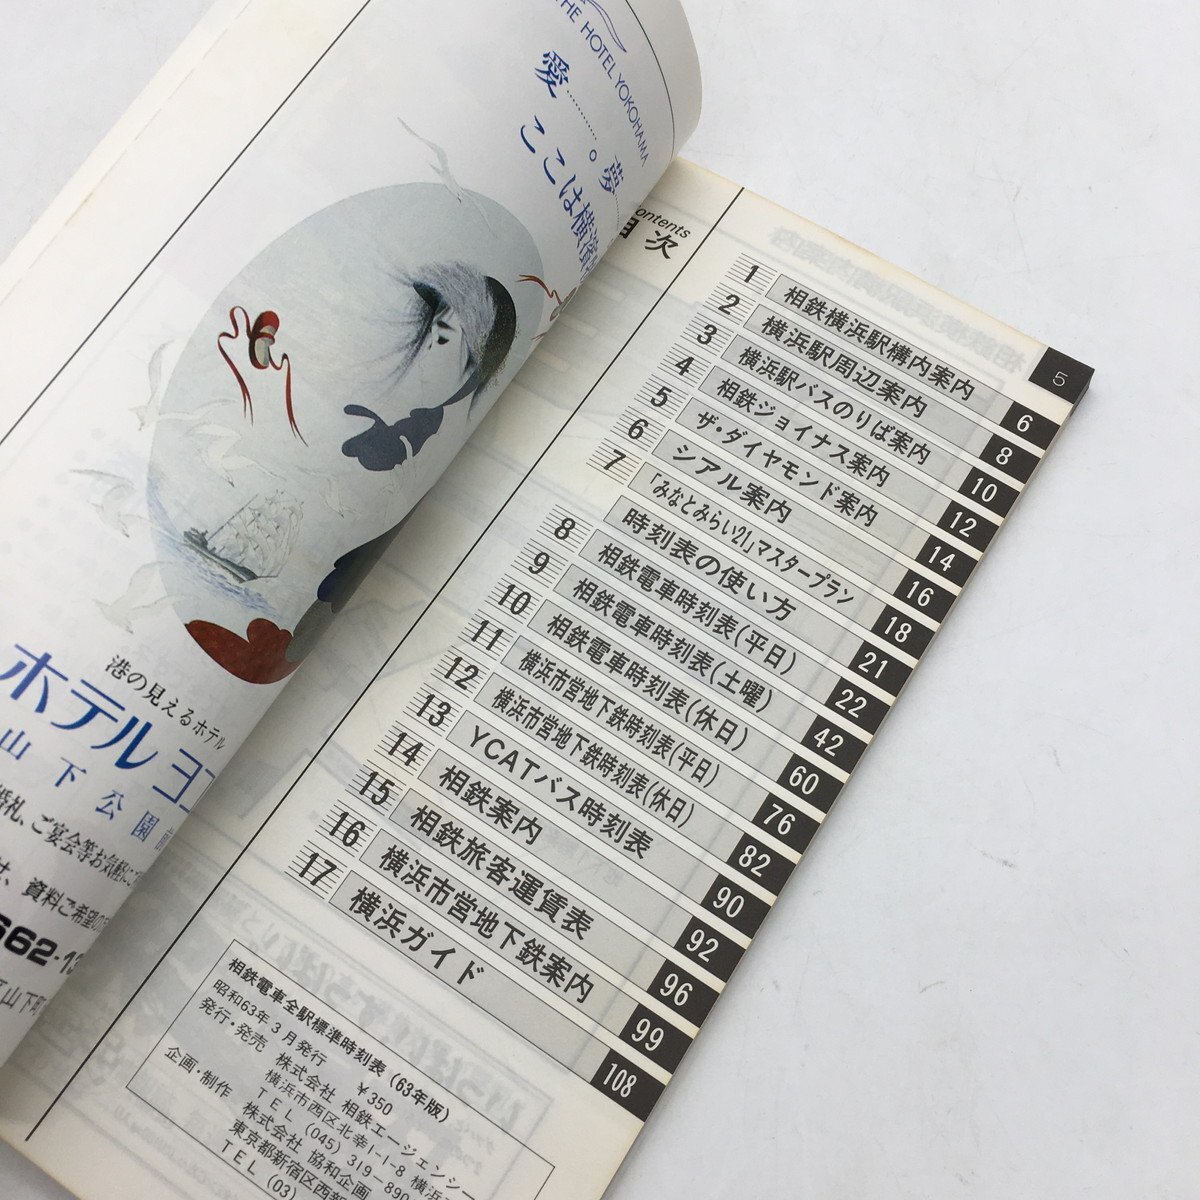 THE HOTEL YOKOHAMA
愛……。夢……
ここは横浜
港の見えるホテル
ホテル ヨコ
山下公園前
婚礼、ご宴会等お気軽にご
資料ご希望の
662-13
区山下町
Contents
目次
5
1 相鉄横浜駅構内案内 6
2 横浜駅周辺案内 8
3 横浜駅バスのりば案内 10
4 相鉄ジョイナス案内 12
5 ザ・ダイヤモンド案内 14
6 シアル案内 16
7 「みなとみらい21」マスタープラン 18
時刻表の使い方 21
8 相鉄電車時刻表(平日) 22
9 相鉄電車時刻表(土曜) 42
10 相鉄電車時刻表(休日) 60
11 横浜市営地下鉄時刻表(平日) 76
12 横浜市営地下鉄時刻表(休日) 82
13 YCATバス時刻表 90
14 相鉄案内 92
15 相鉄旅客運賃表 96
16 横浜市営地下鉄案内 99
17 横浜ガイド 108
相鉄電車全駅標準時刻表(63年版)
昭和63年3月発行 ¥350
発行・発売 株式会社 相鉄エージェンシー
横浜市西区北幸1-1-8 横浜
TEL (045) 319-890
企画・制作 株式会社 協和企画
東京都新宿区西新
TEL (03)